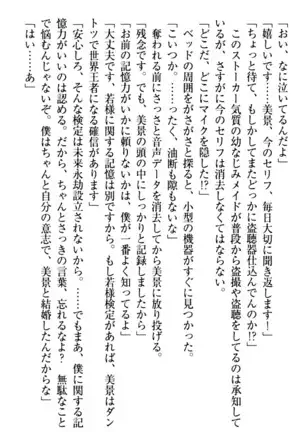 「おい、なに泣いてるんだよ」
「嬉しいです……美景、今のセリフ、毎日大切に聞き返します！」
「ちょっと待て、もしかしてまたどっかに盗聴器仕込んでんのか!?」
このストーカー気質の幼なじみメイドが普段から盗撮や盗聴をしてるのは承知して
いるが、さすがに今のセリフは消去しなくてはならない。
「どこだ、どこにマイクを隠した!?」
ベッドの周囲をがさがさと探ると、小型の機器がすぐに見つかった。
「こいつか。……ったく、油断も隙もないな」
奪われる前にさっさと音声データを消去してから美景に放り投げる。
「残念です。でも、美景の頭の中にしっかりと記録しましたから」
「お前の記憶力がいかに頼りないかは、僕が一番よく知ってるよ」
「大丈夫です、若様に関する記憶は別ですから。もし若様検定があれば、美景はダン
トツで世界王者になる確信があります」
「安心しろ、そんな検定は未来永劫設立されないから。……でもまあ、僕に関する記
憶力がいいのは認める。だから、ちゃんとさっきの言葉、忘れるなよ？　無駄なこと
で悩むんじゃないぞ。僕はちゃんと自分の意志で、美景と結婚したんだからな」
「はい……あ」